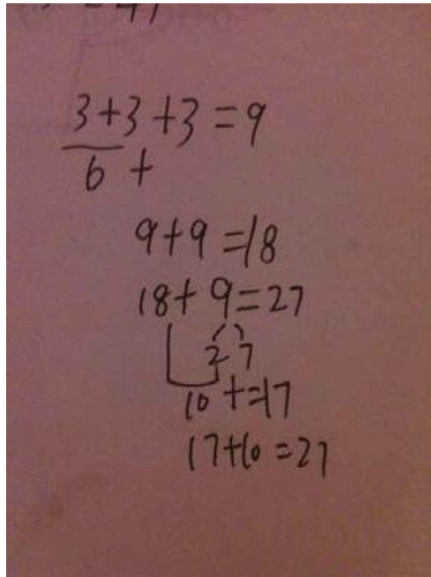 3+3+3=9
6 +
9+9=18
18+9=27
2 7
10 +=17
17+10=27